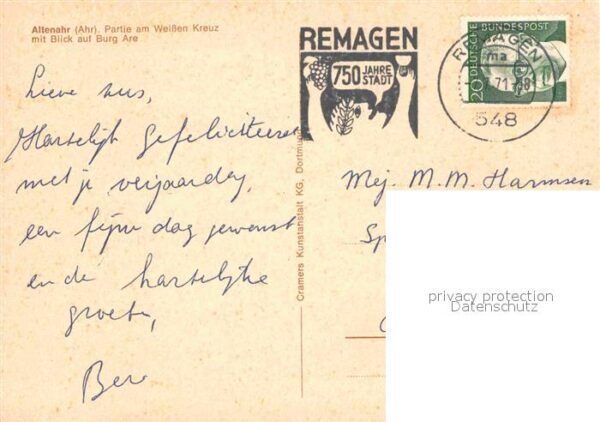 Altenahr (Ahr). Partie am Weißen Kreuz
mit Blick auf Burg Are
Lieve zus,
Hartelijk gefeliciteerd
met je verjaardag,
een fijne dag gewenst
en de hartelijke
groeten,
Ben
Cramers Kunstanstalt KG, Dortmund
REMAGEN
750 JAHRE
STADT
DEUTSCHE BUNDESPOST
20
REMAGEN
ma
548
Mej. M. M. Harmsen
Sp
privacy protection
Datenschutz